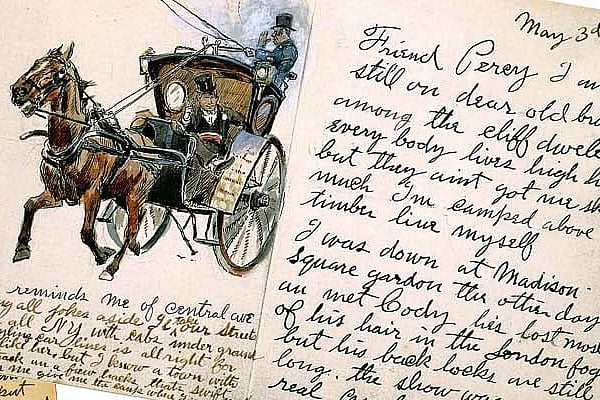 May 3d
Friend Percy I am
still on dear old
among the cliff
every body lives high
but they aint got me
much I'm camped above
timber line myself
I was down at Madison-
Square gardon the other day
an met Cody, he's lost most
of his hair in the London fog
but his back locks are still
long. the show was
real
reminds me of central ave
all jokes aside 96 is our street
all NY with cabs under ground
car lines is all right for
like her, but I know a town with
in a few hacks, thats swift
me give me the